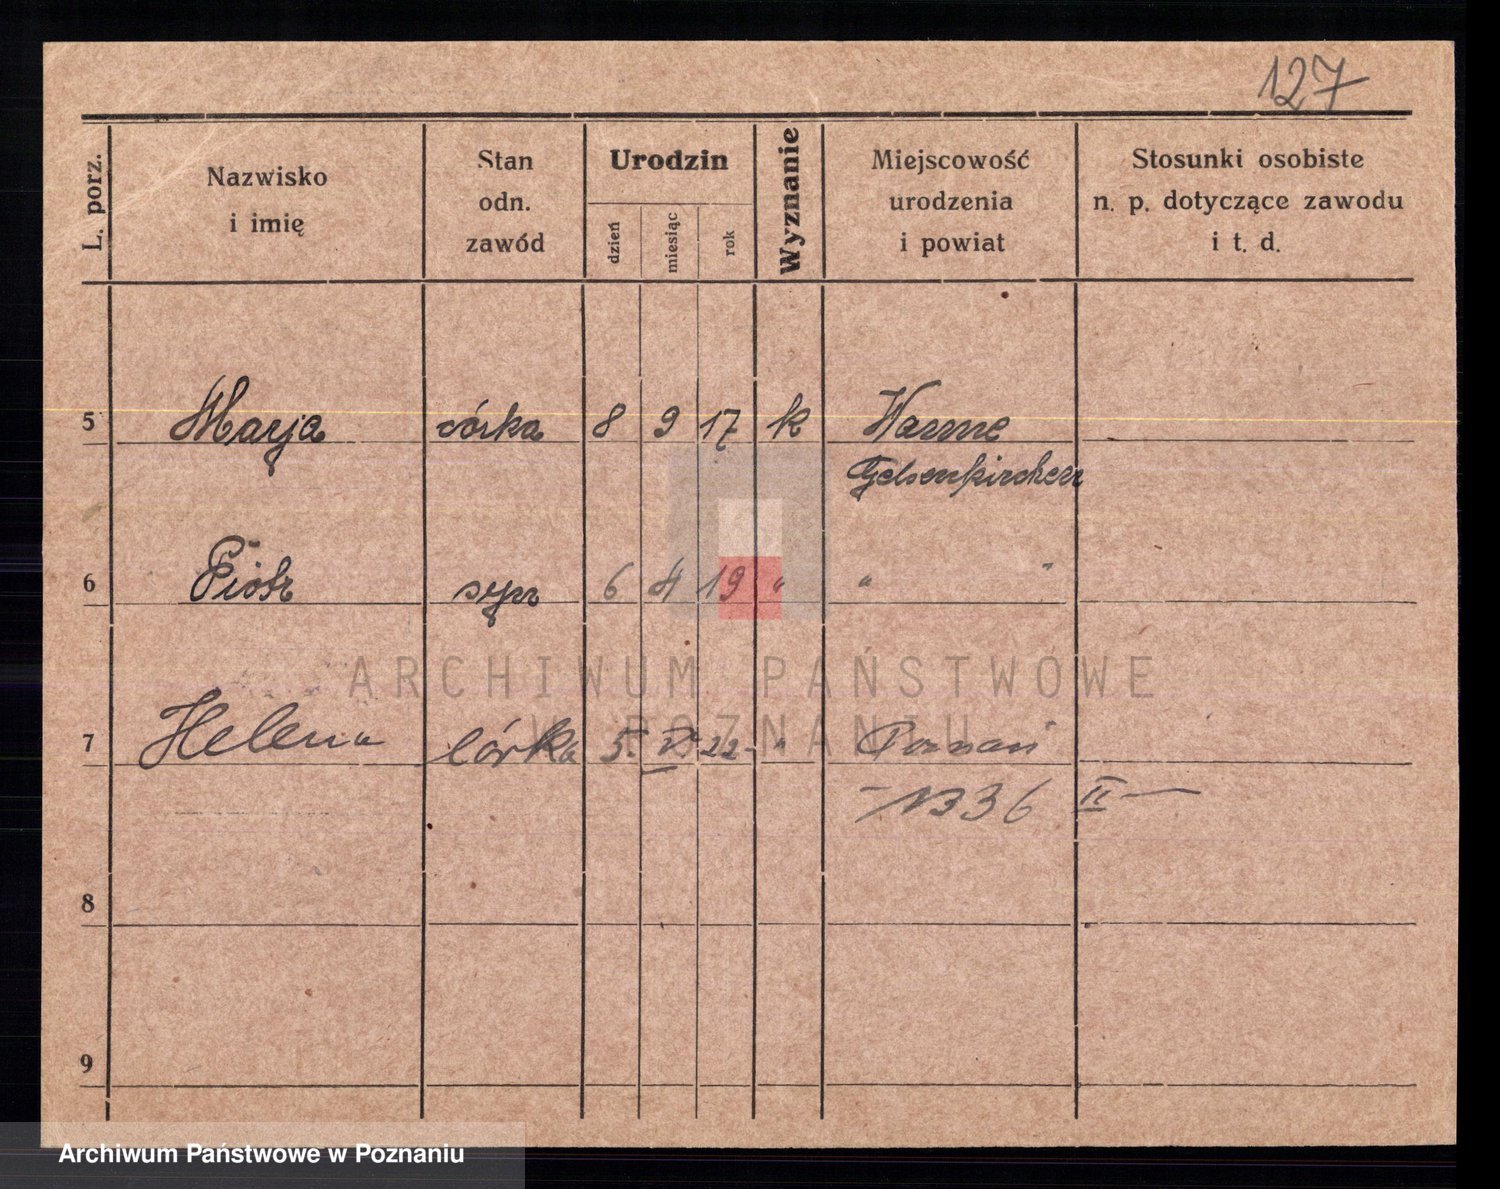 127
L. porz.
Nazwisko
i imię
Stan
odn.
zawód
Urodzin
dzień
miesiąc
rok
Wyznanie
Miejscowość
urodzenia
i powiat
Stosunki osobiste
n. p. dotyczące zawodu
i t. d.
5 Marja córka 8 9 17 k Wanne
Gelsenkirchen
6 Piotr syn 6 4 19 " " "
ARCHIWUM PAŃSTWOWE
W POZNANIU
7 Helena Córka 5. VI 22 - " Poznań
1336 II —
8
9
Archiwum Państwowe w Poznaniu